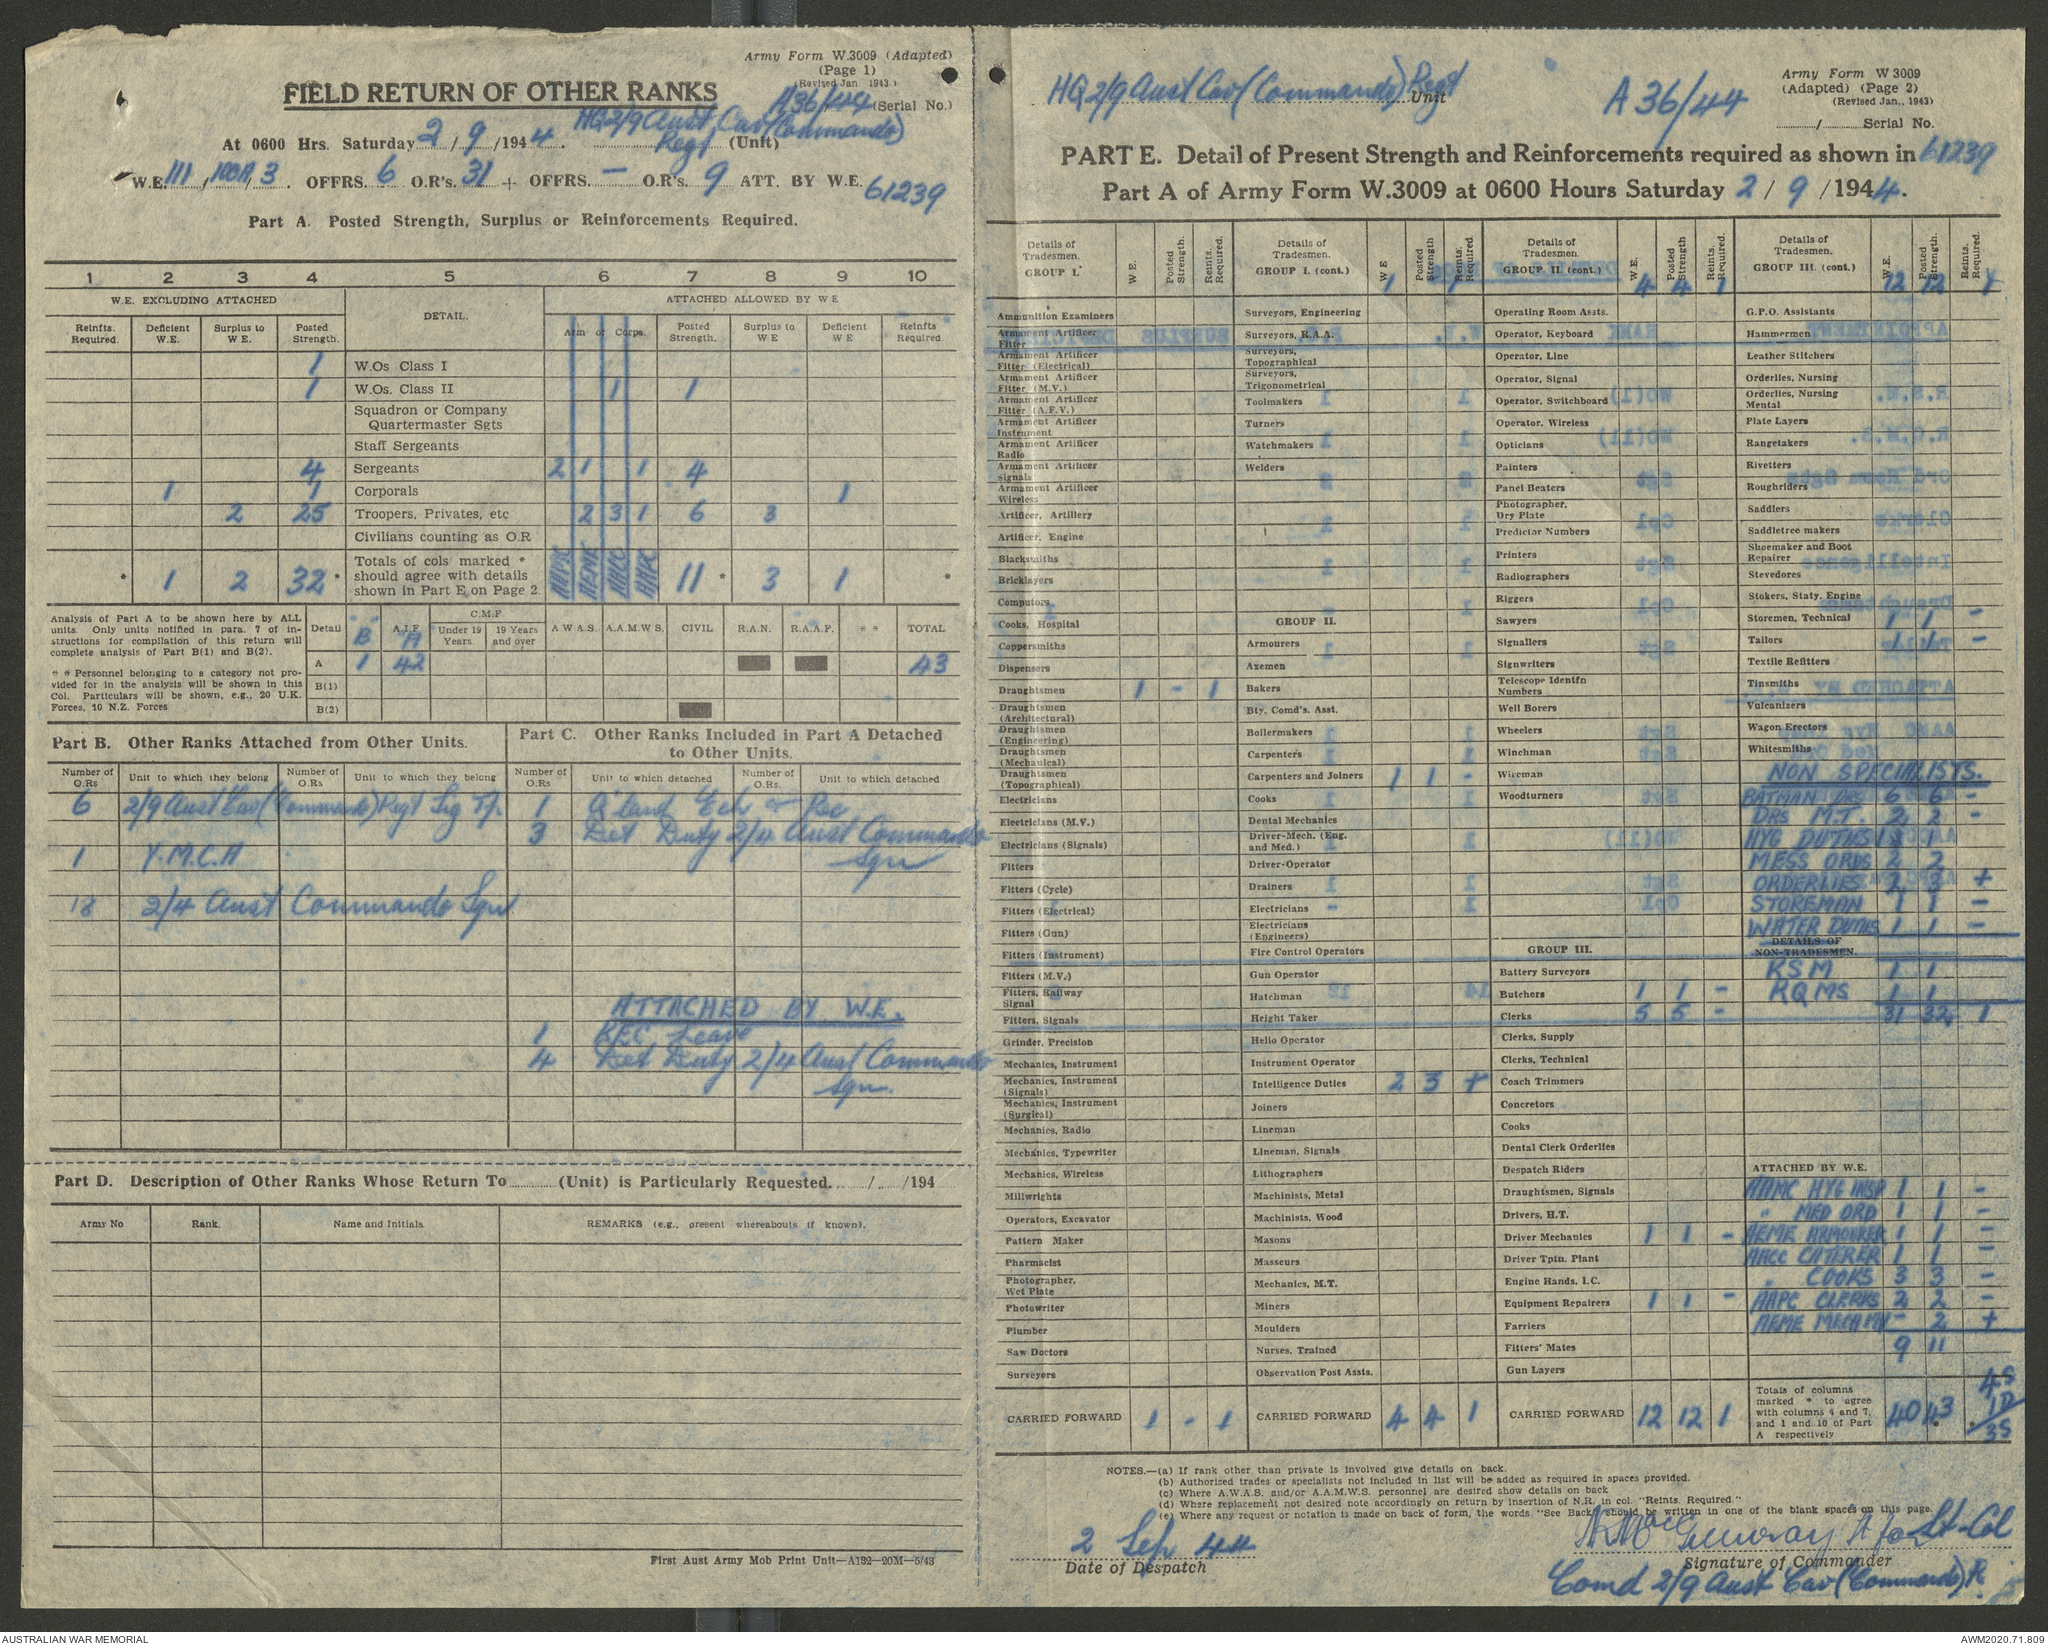 Army Form W.3009 (Adapted)
(Page 1)
(Revised Jan. 1943)
FIELD RETURN OF OTHER RANKS
A36/44 (Serial No.)
At 0600 Hrs. Saturday 2/9/1944. HQ 2/9 Aust Cav (Commando) Regt (Unit)
W.E. 111/ /3. OFFRS. 6 O.R's. 31 + OFFRS. — O.R's. 9 ATT. BY W.E. 61239
Part A. Posted Strength, Surplus or Reinforcements Required.
1 2 3 4 5 6 7 8 9 10
W.E. EXCLUDING ATTACHED DETAIL. ATTACHED ALLOWED BY W E
Reinfts. Required. Deficient W.E. Surplus to W E. Posted Strength. Arm or Corps. Posted Strength. Surplus to W E Deficient W E Reinfts Required
1 W.Os Class I
1 W.Os. Class II 1 1
Squadron or Company Quartermaster Sgts
Staff Sergeants
4 Sergeants 2 1 1 4
1 1 Corporals 1
2 25 Troopers, Privates, etc 2 3 1 6 3
Civilians counting as O.R
* 1 2 32 * Totals of cols marked * should agree with details shown in Part E on Page 2. AAPC AEME AACC AAMC 11 * 3 1 *
Analysis of Part A to be shown here by ALL units. Only units notified in para. 7 of instructions for compilation of this return will complete analysis of Part B(1) and B(2).
* * Personnel belonging to a category not provided for in the analysis will be shown in this Col. Particulars will be shown, e.g., 20 U.K. Forces, 10 N.Z. Forces
Detail B A.I.F. A C.M.F. Under 19 Years 19 Years and over A W A S. A.A.M.W S. CIVIL R.A.N. R.A.A.F. * * TOTAL
A 1 42 43
B(1)
B(2)
Part B. Other Ranks Attached from Other Units.
Number of O.Rs Unit to which they belong Number of O.Rs Unit to which they belong
6 2/9 Aust Cav (Commando) Regt Sig Tp.
1 Y.M.C.A
18 2/4 Aust Commando Sqn
Part C. Other Ranks Included in Part A Detached to Other Units.
Number of O.Rs Unit to which detached Number of O.Rs. Unit to which detached
1
3 Det Duty 2/4 Aust Commando Sqn
ATTACHED BY W.E.
1 REC Leave
4 Det Duty 2/4 Aust Commando Sqn.
Part D. Description of Other Ranks Whose Return To (Unit) is Particularly Requested. / /194
Army No Rank. Name and Initials REMARKS (e.g., present whereabouts if known).
First Aust Army Mob Print Unit—A132—20M—5/43
HQ 2/9 Aust Cav (Commando) Regt Unit
A 36/44
Army Form W 3009
(Adapted) (Page 2)
(Revised Jan., 1943)
/ Serial No.
PART E. Detail of Present Strength and Reinforcements required as shown in 61239
Part A of Army Form W.3009 at 0600 Hours Saturday 2/9/1944.
Details of Tradesmen. GROUP I. W.E. Posted Strength. Reints. Required.
Ammunition Examiners
Armament Artificer Fitter
Armament Artificer Fitter (Electrical)
Armament Artificer Fitter (M.V.)
Armament Artificer Fitter (A.F.V.)
Armament Artificer Instrument
Armament Artificer Radio
Armament Artificer Signals
Armament Artificer Wireless
Artificer, Artillery
Artificer, Engine
Blacksmiths
Bricklayers
Computors
Cooks, Hospital
Coppersmiths
Dispensers
Draughtsmen 1 - 1
Draughtsmen (Architectural)
Draughtsmen (Engineering)
Draughtsmen (Mechanical)
Draughtsmen (Topographical)
Electricians
Electricians (M.V.)
Electricians (Signals)
Fitters
Fitters (Cycle)
Fitters (Electrical)
Fitters (Gun)
Fitters (Instrument)
Fitters (M.V.)
Fitters, Railway Signal
Fitters, Signals
Grinder, Precision
Mechanics, Instrument
Mechanics, Instrument (Signals)
Mechanics, Instrument (Surgical)
Mechanics, Radio
Mechanics, Typewriter
Mechanics, Wireless
Millwrights
Operators, Excavator
Pattern Maker
Pharmacist
Photographer, Wet Plate
Photowriter
Plumber
Saw Doctors
Surveyors
CARRIED FORWARD 1 - 1
Details of Tradesmen. GROUP I. (cont.) W E Posted Strength Reints. Required.
1 - 1
Surveyors, Engineering
Surveyors, R.A.A.
Surveyors, Topographical
Surveyors, Trigonometrical
Toolmakers
Turners
Watchmakers
Welders
GROUP II.
Armourers
Axemen
Bakers
Bty. Comd's. Asst.
Boilermakers
Carpenters
Carpenters and Joiners 1 1 -
Cooks
Dental Mechanics
Driver-Mech. (Eng. and Med.)
Driver-Operator
Drainers
Electricians
Electricians (Engineers)
Fire Control Operators
Gun Operator
Hatchman
Height Taker
Helio Operator
Instrument Operator
Intelligence Duties 2 3 +
Joiners
Lineman
Lineman, Signals
Lithographers
Machinists, Metal
Machinists, Wood
Masons
Masseurs
Mechanics, M.T.
Miners
Moulders
Nurses, Trained
Observation Post Assts.
CARRIED FORWARD 4 4 1
Details of Tradesmen. GROUP II. (cont.) W.E. Posted Strength Reints. Required.
4 4 1
Operating Room Assts.
Operator, Keyboard
Operator, Line
Operator, Signal
Operator, Switchboard
Operator, Wireless
Opticians
Painters
Panel Beaters
Photographer, Dry Plate
Predictor Numbers
Printers
Radiographers
Riggers
Sawyers
Signallers
Signwriters
Telescope Identfn Numbers
Well Borers
Wheelers
Winchman
Wireman
Woodturners
GROUP III.
Battery Surveyors
Butchers 1 1 -
Clerks 5 5 -
Clerks, Supply
Clerks, Technical
Coach Trimmers
Concretors
Cooks
Dental Clerk Orderlies
Despatch Riders
Draughtsmen, Signals
Drivers, H.T.
Driver Mechanics 1 1 -
Driver Tptn. Plant
Engine Hands, I.C.
Equipment Repairers 1 1 -
Farriers
Fitters' Mates
Gun Layers
CARRIED FORWARD 12 12 1
Details of Tradesmen. GROUP III. (cont) W.E. Posted Strength. Reints. Required.
12 12 1
G.P.O. Assistants
Hammermen
Leather Stitchers
Orderlies, Nursing
Orderlies, Nursing Mental
Plate Layers
Rangetakers
Rivetters
Roughriders
Saddlers
Saddletree makers
Shoemaker and Boot Repairer
Stevedores
Stokers, Staty. Engine
Storemen, Technical 1 1 -
Tailors 1 1 -
Textile Refitters
Tinsmiths
Vulcanizers
Wagon Erectors
Whitesmiths
NON SPECIALISTS.
BATMAN DRS 6 6 -
DRS M.T. 2 2 -
HYG DUTIES 1 1
MESS ORDS 2 2
ORDERLIES 2 3 +
STOREMAN 1 1 -
WATER DUTIES 1 1 -
DETAILS OF NON-TRADESMEN.
RSM 1 1
RQMS 1 1
31 32 1
ATTACHED BY W.E.
AAMC HYG INSP 1 1 -
" MED ORD 1 1 -
AEME ARMOURER 1 1 -
AACC CATERER 1 1 -
" COOKS 3 3 -
AAPC CLERKS 2 2 -
AEME MECH MV - 2 +
9 11
Totals of columns marked * to agree with columns 4 and 7, and 1 and 10 of Part A respectively 40 43 * 4S 1D * 3S
NOTES.—(a) If rank other than private is involved give details on back.
(b) Authorized trades or specialists not included in list will be added as required in spaces provided.
(c) Where A.W.A.S. and/or A.A.M.W.S. personnel are desired show details on back
(d) Where replacement not desired note accordingly on return by insertion of N.R. in col. "Reints. Required."
(e) Where any request or notation is made on back of form, the words "See Back" should be written in one of the blank spaces on this page.
2 Sep 44
Date of Despatch
Lt for Lt-Col
Signature of Commander
Comd 2/9 Aust Cav (Commando) R
AUSTRALIAN WAR MEMORIAL
AWM2020.71.809